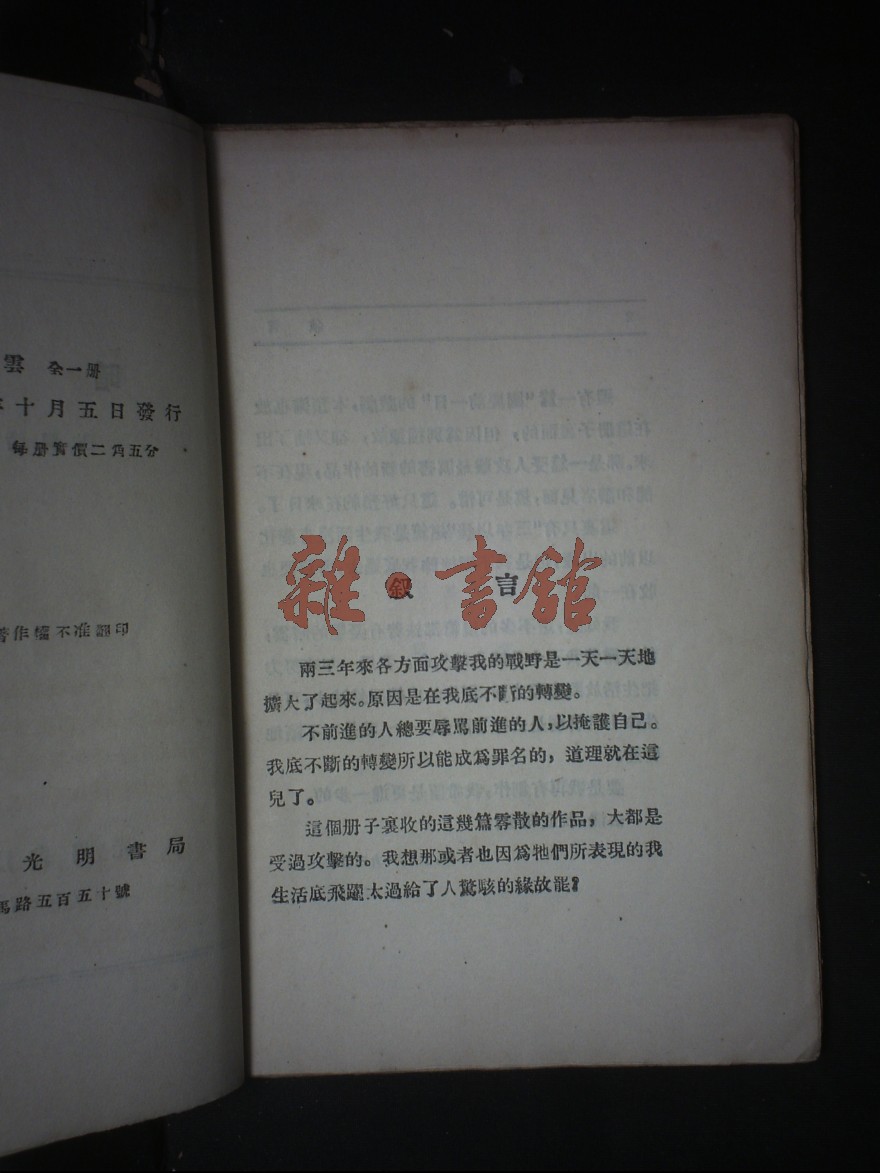 雲 全一册
年十月五日發行
每册實價二角五分
著作權不准翻印
光明書局
馬路五百五十號
雜·書館
敍言
兩三年來各方面攻擊我的戰野是一天一天地
擴大了起來。原因是在我底不斷的轉變。
不前進的人總要辱罵前進的人，以掩護自己。
我底不斷的轉變所以能成爲罪名的，道理就在這
兒了。
這個册子裏收的這幾篇零散的作品，大都是
受過攻擊的。我想那或者也因爲牠們所表現的我
生活底飛躍太過給了人驚駭的緣故罷？